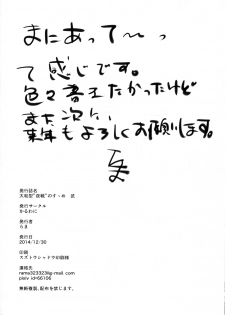 まにあって〜っ
て感じです。
色々書きたかったけど
また次に、
来年もよろしくお願いします。
らま
発行誌名
大和型"夜戦"のすゝめ 弐
発行サークル
かるわに
発行者
らま
発行日
2014/12/30
印刷
スズトウシャドウ印刷様
連絡先
rama323323@g-mail.com
pixiv id=66106
無断複製、配布を禁じます。